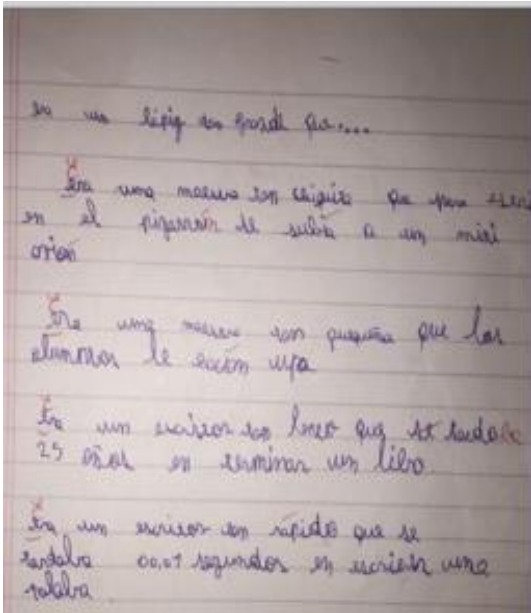 era un lápiz tan grande que....
Era una maestra tan chiquita que para escri
en el pizarrón se subía a un mini
avión
Era una maestra tan pequeña que los
alumnos le hacían upa
Era un escritor tan lento que se tardaba
25 años en terminar un libro.
Era un escritor tan rápido que se
tardaba 00,01 segundos en escribir una
palabra